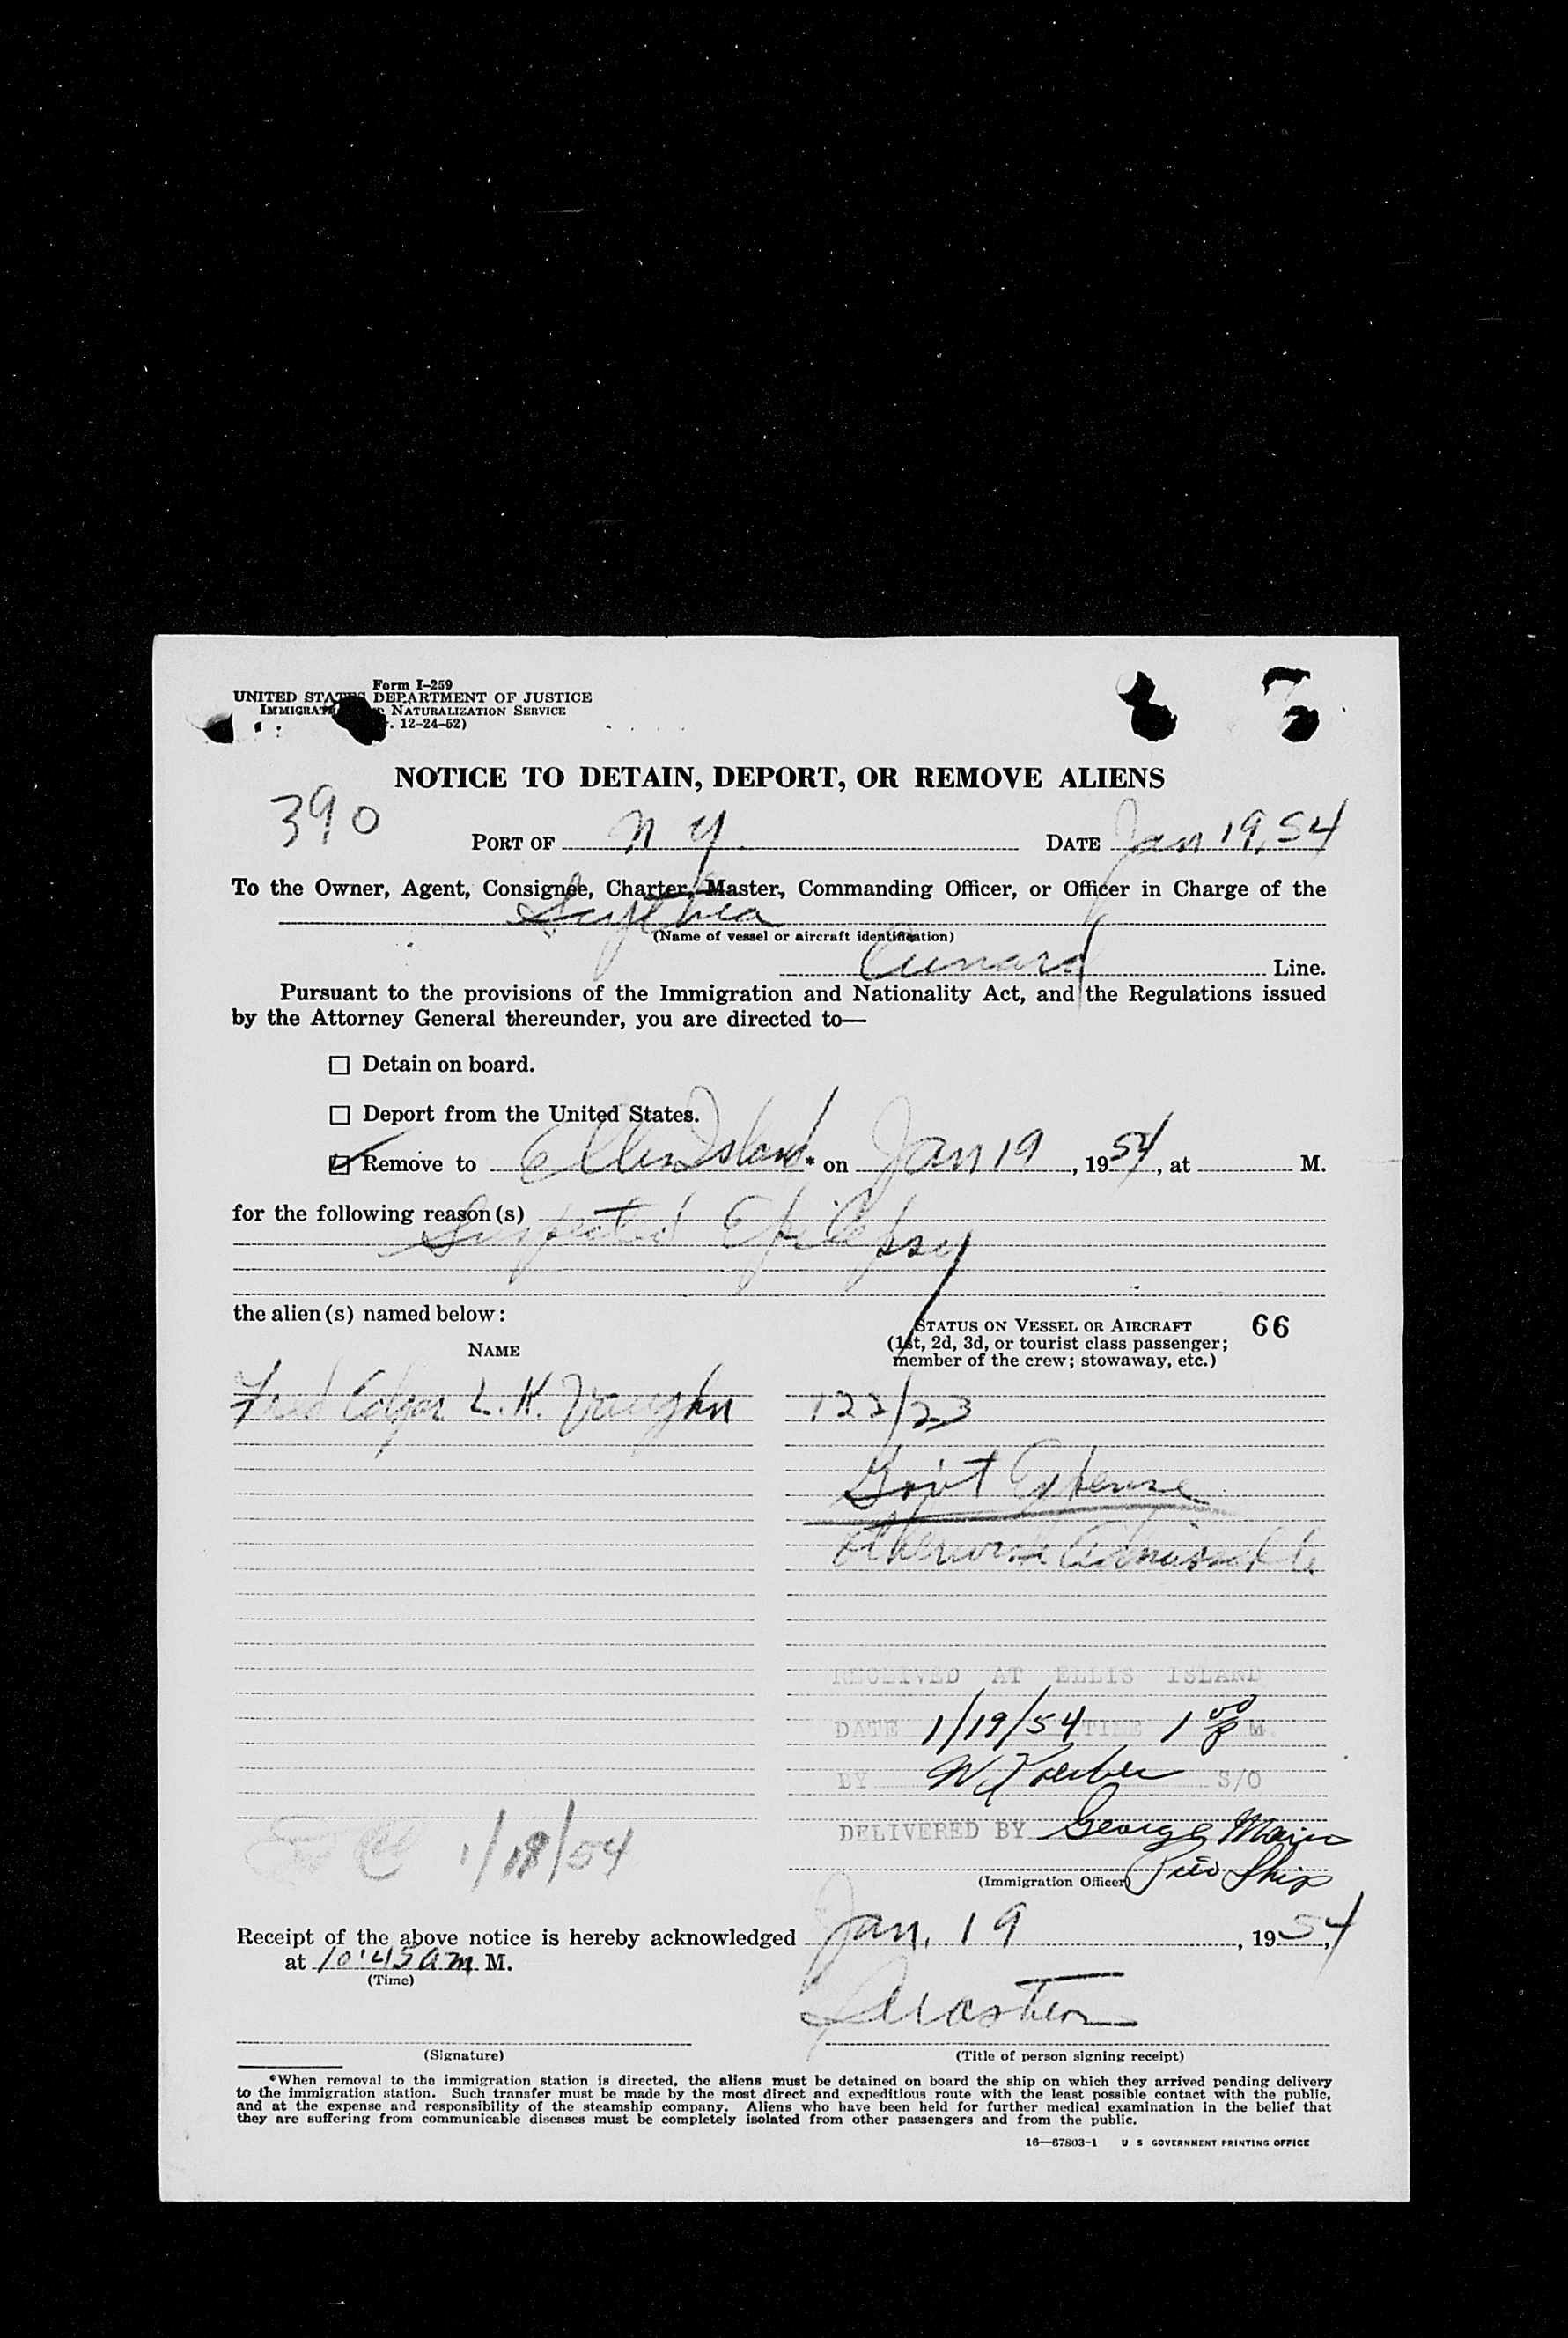 Form I-259
UNITED STATES DEPARTMENT OF JUSTICE
IMMIGRAT NATURALIZATION SERVICE
12-24-52)
NOTICE TO DETAIN, DEPORT, OR REMOVE ALIENS
390
PORT OF N Y. DATE Jan 19, 54
To the Owner, Agent, Consignee, Charter, Master, Commanding Officer, or Officer in Charge of the
Scythia
(Name of vessel or aircraft identification)
Cunard Line.
Pursuant to the provisions of the Immigration and Nationality Act, and the Regulations issued
by the Attorney General thereunder, you are directed to—
☐ Detain on board.
☐ Deport from the United States.
☑ Remove to Ellis Island * on Jan 19, 1954, at M.
for the following reason(s)
Suspected Epilepsy
the alien(s) named below:
STATUS ON VESSEL OR AIRCRAFT 66
(1st, 2d, 3d, or tourist class passenger;
member of the crew; stowaway, etc.)
NAME
Fred Edgar L. H. Vaughn 122/23
Gov't Expense
Otherwise Admissable
RECEIVED AT ELLIS ISLAND
DATE 1/19/54 TIME 1 00 P M.
BY W S/O
DELIVERED BY George
Ship
(Immigration Officer)
1/18/54
Receipt of the above notice is hereby acknowledged Jan. 19, 1954,
at 10:45 am M.
(Time)
(Signature)
(Title of person signing receipt)
*When removal to the immigration station is directed, the aliens must be detained on board the ship on which they arrived pending delivery
to the immigration station. Such transfer must be made by the most direct and expeditious route with the least possible contact with the public,
and at the expense and responsibility of the steamship company. Aliens who have been held for further medical examination in the belief that
they are suffering from communicable diseases must be completely isolated from other passengers and from the public.
16—67803-1 U S GOVERNMENT PRINTING OFFICE